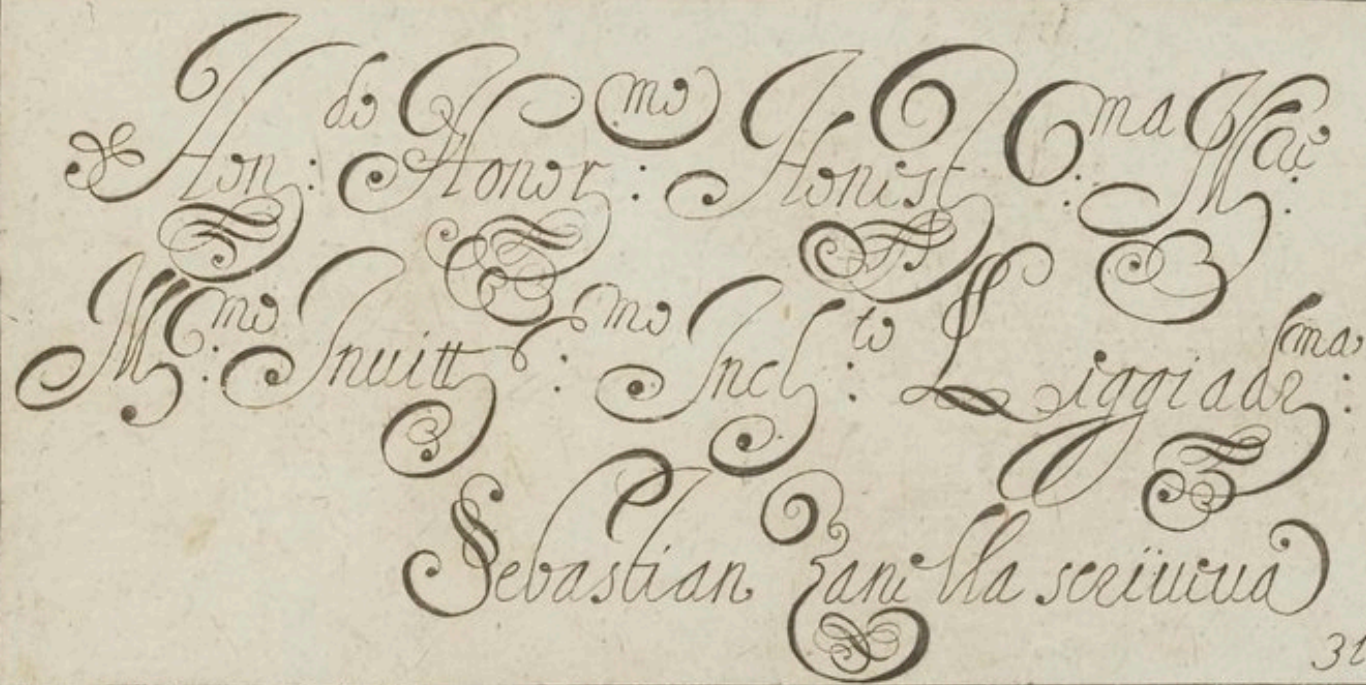 Hon:do Honor:mo Honest:ma Mae:
M:mo Inuitt:mo Incl:to Liggiadr:ma
Sebastian Zanella scriueua
31